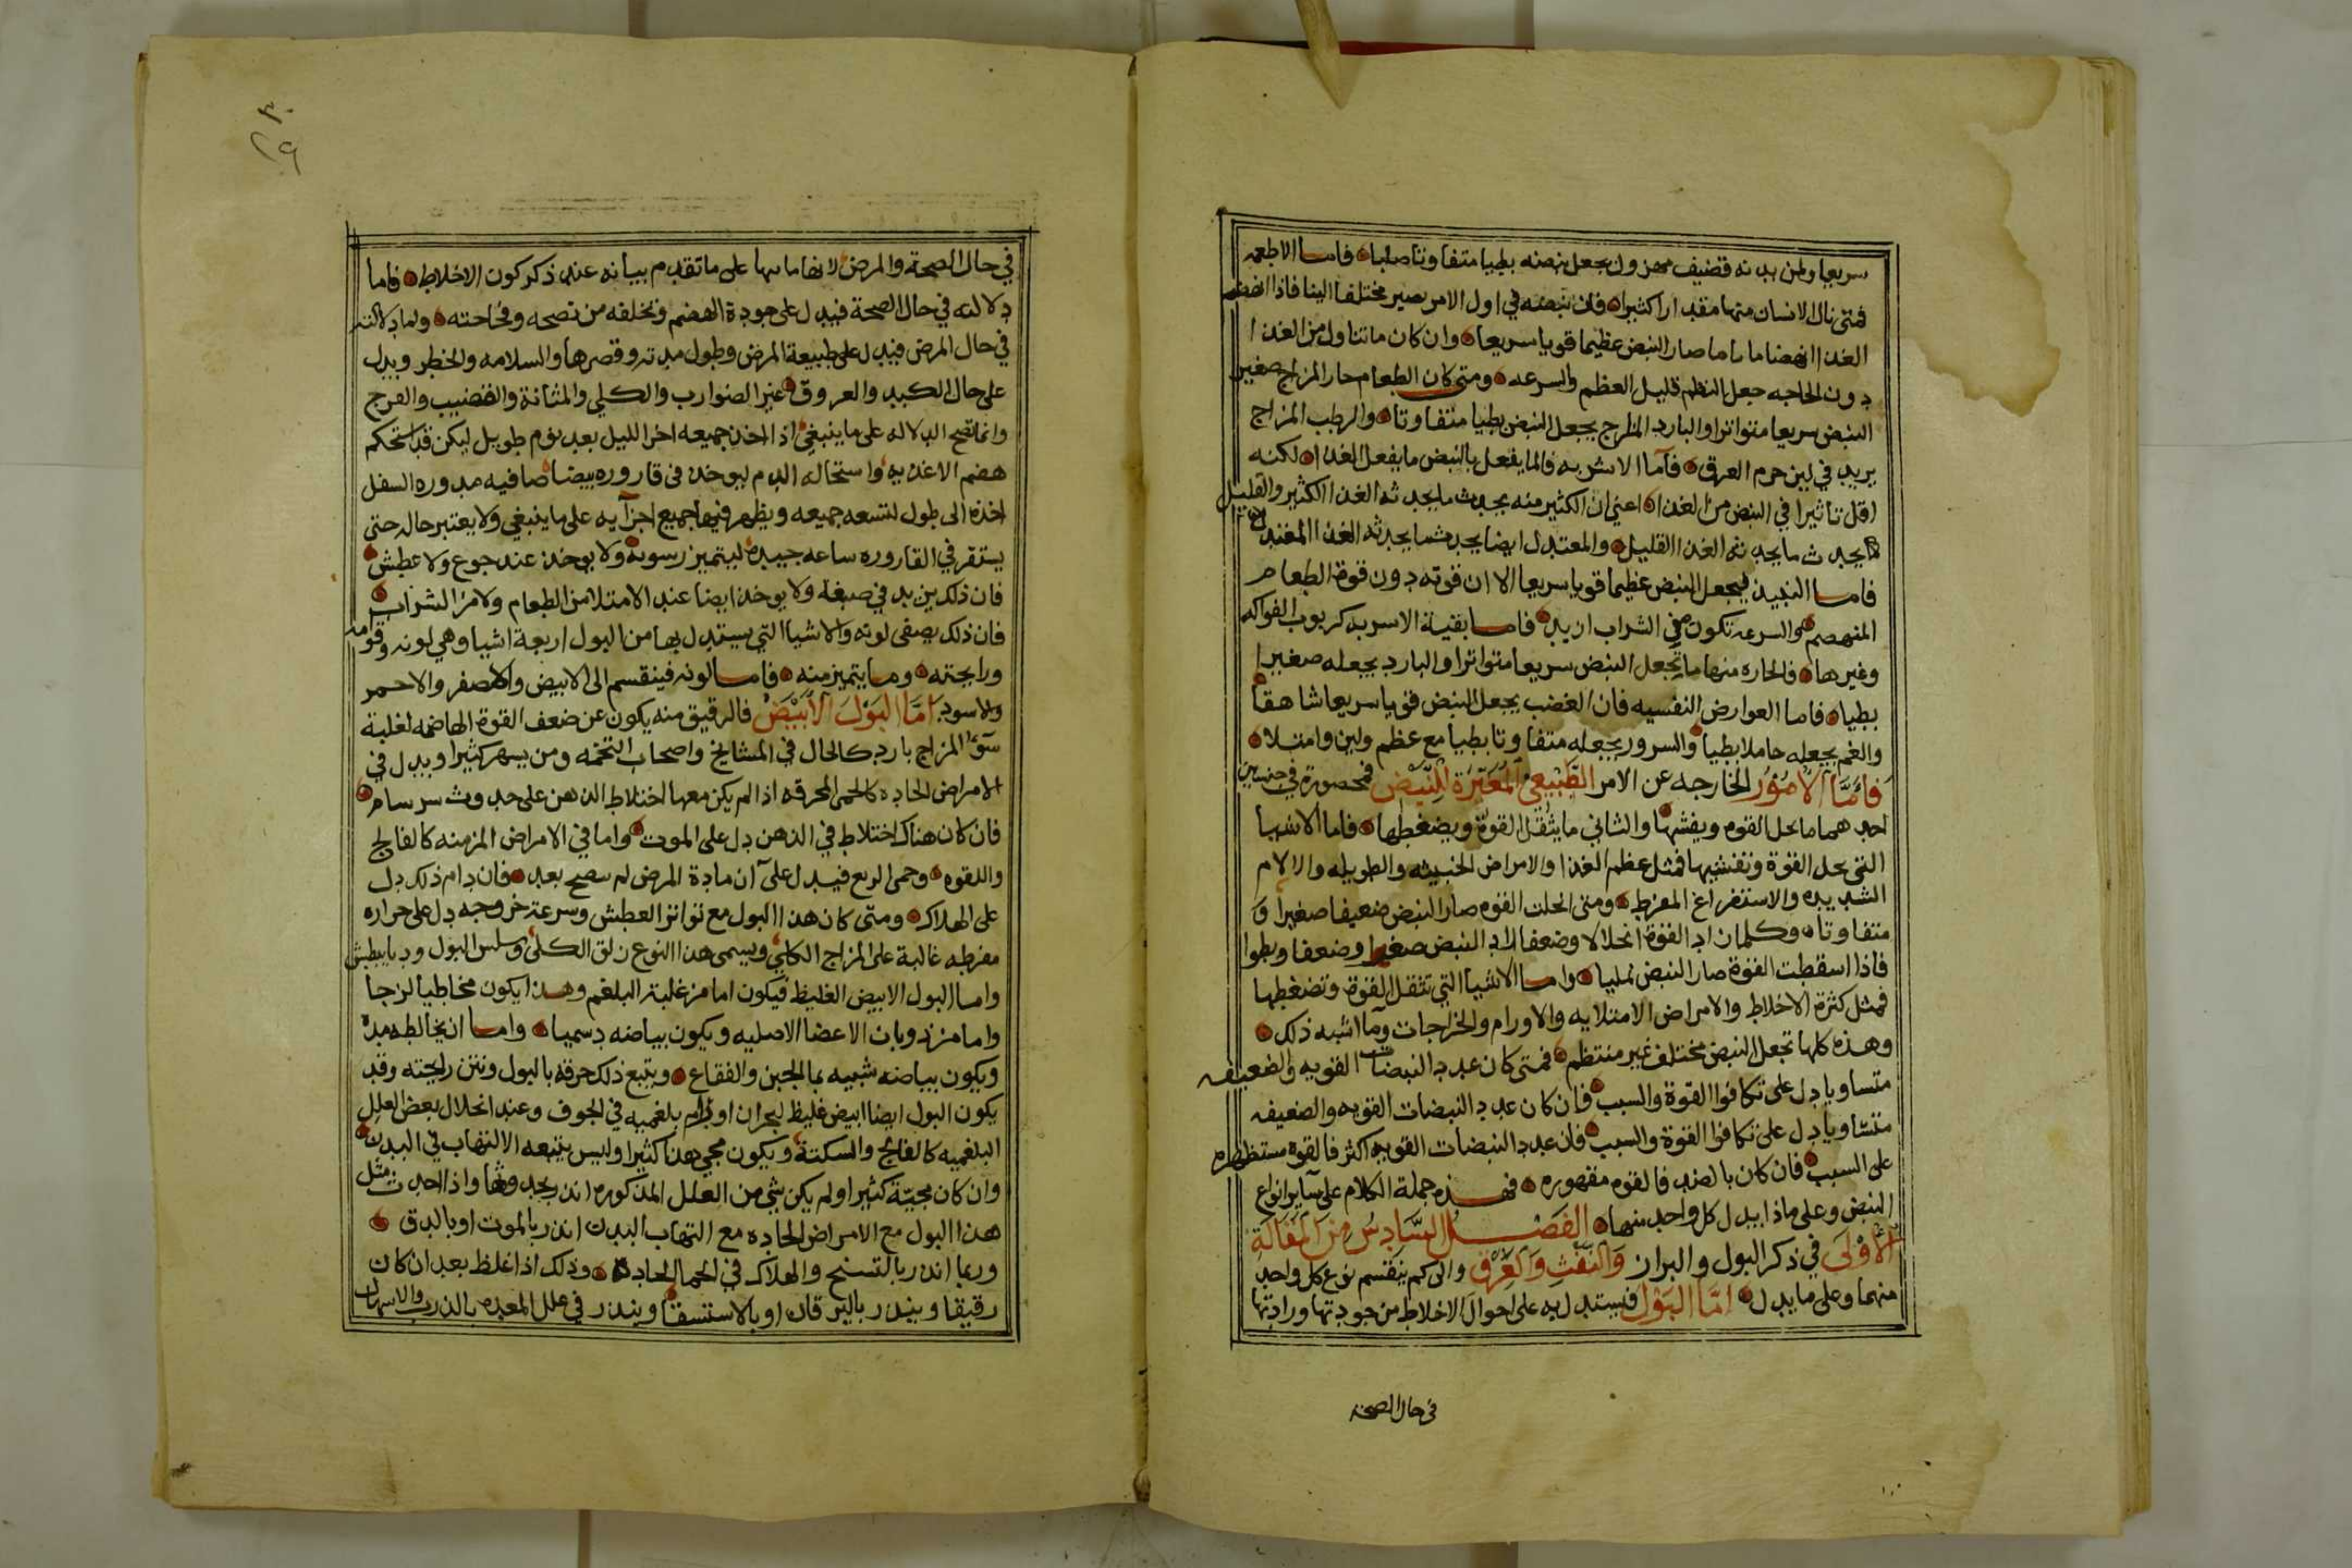 سريعا ولمن بدنه قضيف مهزول يجعل نبضه بطيا متفاوتا صلبا فاما الاطعمه
فمتى نال الانسان منها مقدارا كثيرا فان نبضه في اول الامر يصير مختلفا الينا فاذا انهضم
الغذا انهضاما تاما صار النبض عظيما قويا سريعا وان كان ما تناول من الغذا
دون الحاجه جعل النظم قليل العظم والسرعه ومتى كان الطعام حار المزاج صغير
النبض سريعا متواترا والبارد المزاج يجعل النبض بطيا متفاوتا والرطب المزاج
يزيد في لين جرم العرق فاما الاشربه فانما يفعل بالنبض ما يفعل الغذا لكنه
اقل تاثيرا في النبض من الغذا اعني ان الكثير منه يحدث ما يحدثه الغذا الكثير والقليل
يحدث ما يحدثه الغذا القليل والمعتدل ايضا يحدث ما يحدثه الغذا المعتدل
فاما النبيذ فيجعل النبض عظيما قويا سريعا الا ان قوته دون قوة الطعام
المنهضم والسرعه تكون في الشراب ازيد فاما بقية الاشربه كربوب الفواكه
وغيرها فالحاره منها ما تجعل النبض سريعا متواترا والبارد يجعله صغيرا
بطيا فاما العوارض النفسيه فان الغضب يجعل النبض قويا سريعا شاهقا
والغم يجعله خاملا بطيا والسرور يجعله متفاوتا بطيا مع عظم ولين وامتلا
فاما الامور الخارجه عن الامر الطبيعي المغيرة للنبض فمحصورة في جنسين
احدهما ما يحل القوه ويفشها والثاني ما يثقل القوة ويضغطها فاما الاشيا
التي تحل القوة وتفشيها فمثل عظم الغذا والامراض الخبيثه والطويله والالام
الشديده والاستفراغ المفرط ومتى انحلت القوه صار النبض ضعيفا صغيرا و
متفاوتا وكلما زاد القوة انحلالا وضعفا زاد النبض صغرا وضعفا وبطوا
فاذا اسقطت القوة صار النبض نمليا واما الاشيا التي تثقل القوة وتضغطها
فمثل كثرة الاخلاط والامراض الامتلايه والاورام والخراجات وما اشبه ذلك
وهذه كلها تجعل النبض مختلف غير منتظم فمتى كان عدد النبضات القويه والضعيفه
متساويا دل على تكافوا القوة والسبب فان كان عدد النبضات القويه والضعيفه
متساويا دل على تكافوا القوة والسبب فان عدد النبضات القويه اكثر فالقوة مستظهره
على السبب فان كان بالضد فالقوه مقهوره فهذه جملة الكلام على ساير انواع
النبض وعلى ماذا يدل كل واحد منها الفصل السادس من المقالة
الاولى في ذكر البول والبراز والنفث والعرق والى كم ينقسم نوع كل واحد
منهما وعلى ما يدل اما البول فيستدل به على احوال الاخلاط من جودتها ورادتها
في حال الصحة
في حال الصحة والمرض على ما تقدم بيانه عند ذكر كون الاخلاط فاما
دلالته في حال الصحة فيدل على جودة الهضم وتخلفه من نضجه وفجاجته واما دلالته
في حال المرض فيدل على طبيعة المرض وطول مدته وقصرها والسلامه والخطر ويدل
على حال الكبد والعروق غير الضوارب والكلى والمثانة والقضيب والفرج
وانما تصح الدلاله على ما ينبغي اذا اخذ جميعه اخر الليل بعد نوم طويل ليكن قد استحكم
هضم الاغذيه واستحاله الدم ليوخذ في قاروره بيضا صافيه مدوره السفل
اخذه الى طول لتسعه جميعه ويظهر فيها جميع اجزآيه على ما ينبغي ولا يعتبر حاله حتى
يستقر في القاروره ساعه جيده ليتميز رسوبه ولا يوخذ عند جوع ولا عطش
فان ذلك يزيد في صبغه ولا يوخذ ايضا عند الامتلا من الطعام ولا من الشراب
فان ذلك يصفى لونه والاشيا التي يستدل بها من البول اربعة اشيا وهي لونه وقوامه
ورايحته وما يتميز منه فاما لونه فينقسم الى الابيض والاصفر والاحمر
والاسود اما البول الابيض فالرقيق منه يكون عن ضعف القوة الهاضمه لغلبة
سوء المزاج بارد كالحال في المشايخ واصحاب التخمه ومن يسهر كثيرا ويدل في
الامراض الحاده كالحمى المحرقه اذا لم يكن معها اختلاط الذهن على حدوث سرسام
فان كان هناك اختلاط في الذهن دل على الموت واما في الامراض المزمنه كالفالج
واللقوه وحمى الربع فيدل على آن مادة المرض لم تنضج بعد فان دام ذلك دل
على الهلاك ومتى كان هذا البول مع تواتر العطش وسرعة خروجه دل على حراره
مفرطه غالبة على المزاج الكلي ويسمى هذا النوع زلق الكلى وسلس البول وديابيطش
واما البول الابيض الغليظ فيكون اما من غلبة البلغم وهذا يكون مخاطيا لزجا
واما من ذوبان الاعضا الاصليه ويكون بياضه دسميا واما ان يخالطه مدة
ويكون بياضه شبيه بما الجبن والفقاع ويتبع ذلك حرقه بالبول ونتن رايحته وقد
يكون البول ايضا ابيض غليظ لبحران اورام بلغميه في الجوف وعند انحلال بعض العلل
البلغميه كالفالج والسكتة ويكون مجي هذا كثيرا وليس يتبعه الالتهاب في البدن
وان كان مجيّة كثيرا ولم يكن شي من العلل المذكوره انذر بحدوثها واذا احدث مثل
هذا البول مع الامراض الحاده مع التهاب البدن انذر بالموت او بالدق
وربما انذر بالتسنج والهلاك في الحما الحادة وذلك اذا غلظ بعد ان كان
رقيقا وينذر باليرقان او بالاستسقا وينذر في علل المعده بالذرب والاسهال